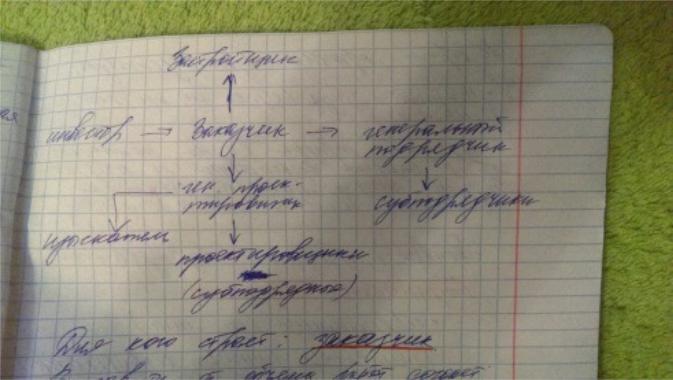 Застройщик
инвестор → Заказчик → генеральный
подрядчик
ген проек-
тировщик
субподрядчики
изыскатели
проектировщики
(субподрядные)
Для кого строят: заказчик